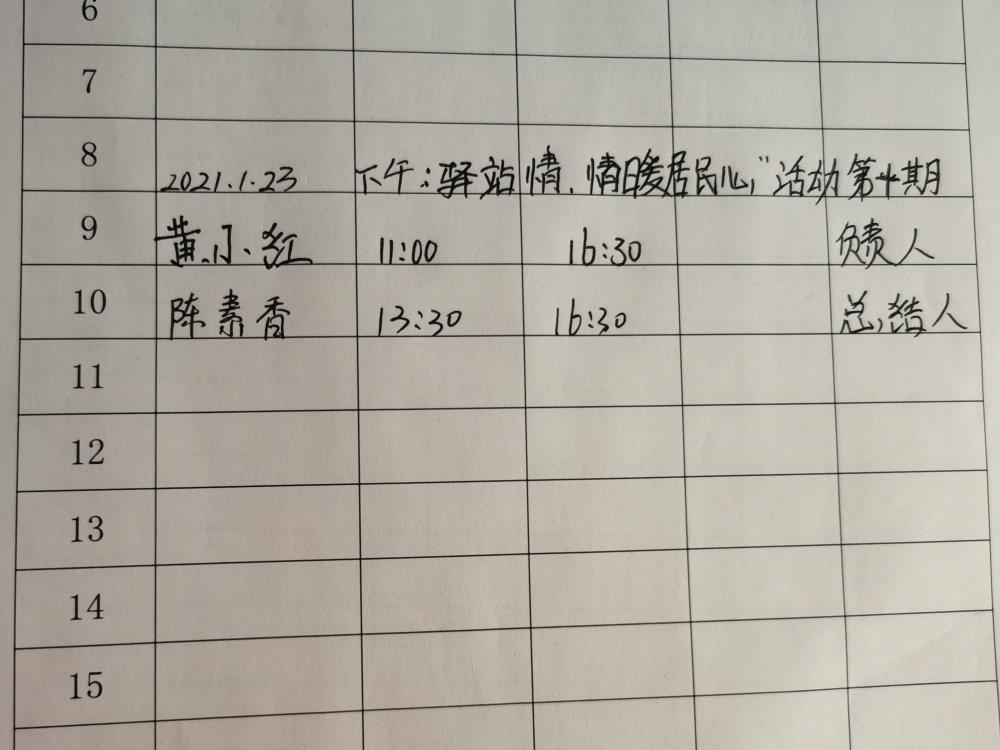 6
7
8 2021.1.23 下午:驿站情、情暖居民心"活动第十期
9 黄小红 11:00 16:30 负责人
10 陈素香 13:30 16:30 总结人
11
12
13
14
15